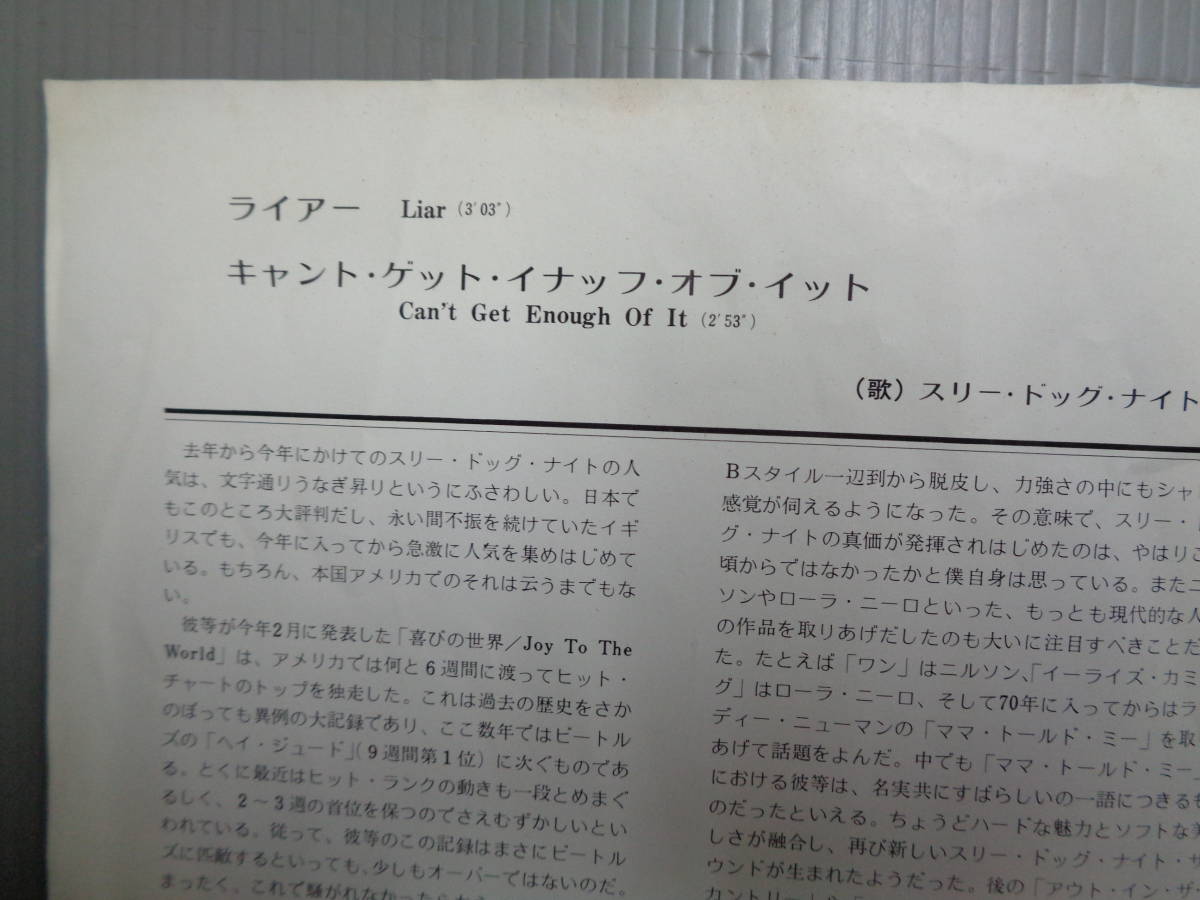 ライアー Liar (3′03″)
キャント・ゲット・イナッフ・オブ・イット
Can't Get Enough Of It (2′53″)
(歌) スリー・ドッグ・ナイト
去年から今年にかけてのスリー・ドッグ・ナイトの人
気は、文字通りうなぎ昇りというにふさわしい。日本で
もこのところ大評判だし、永い間不振を続けていたイギ
リスでも、今年に入ってから急激に人気を集めはじめて
いる。もちろん、本国アメリカでのそれは云うまでもな
い。
彼等が今年2月に発表した「喜びの世界/Joy To The
World」は、アメリカでは何と6週間に渡ってヒット・
チャートのトップを独走した。これは過去の歴史をさか
のぼっても異例の大記録であり、ここ数年ではビートル
ズの「ヘイ・ジュード」(9週間第1位)に次ぐものであ
る。とくに最近はヒット・ランクの動きも一段とめまぐ
るしく、2〜3週の首位を保つのでさえむずかしいとい
われている。従って、彼等のこの記録はまさにビートル
ズに匹敵するといっても、少しもオーバーではないのだ。
まったく、これで騒がれなかったら
Bスタイル一辺到から脱皮し、力強さの中にもシャ
感覚が伺えるようになった。その意味で、スリー・
グ・ナイトの真価が発揮されはじめたのは、やはりこ
頃からではなかったかと僕自身は思っている。またニ
ソンやローラ・ニーロといった、もっとも現代的な人
の作品を取りあげだしたのも大いに注目すべきことだ
た。たとえば「ワン」はニルソン、「イーライズ・カミ
グ」はローラ・ニーロ、そして70年に入ってからはラ
ディー・ニューマンの「ママ・トールド・ミー」を取り
あげて話題をよんだ。中でも「ママ・トールド・ミー
における彼等は、名実共にすばらしいの一語につきるも
のだったといえる。ちょうどハードな魅力とソフトな美
しさが融合し、再び新しいスリー・ドッグ・ナイト・サ
ウンドが生まれたようだった。後の「アウト・イン・ザ・
カントリー」や